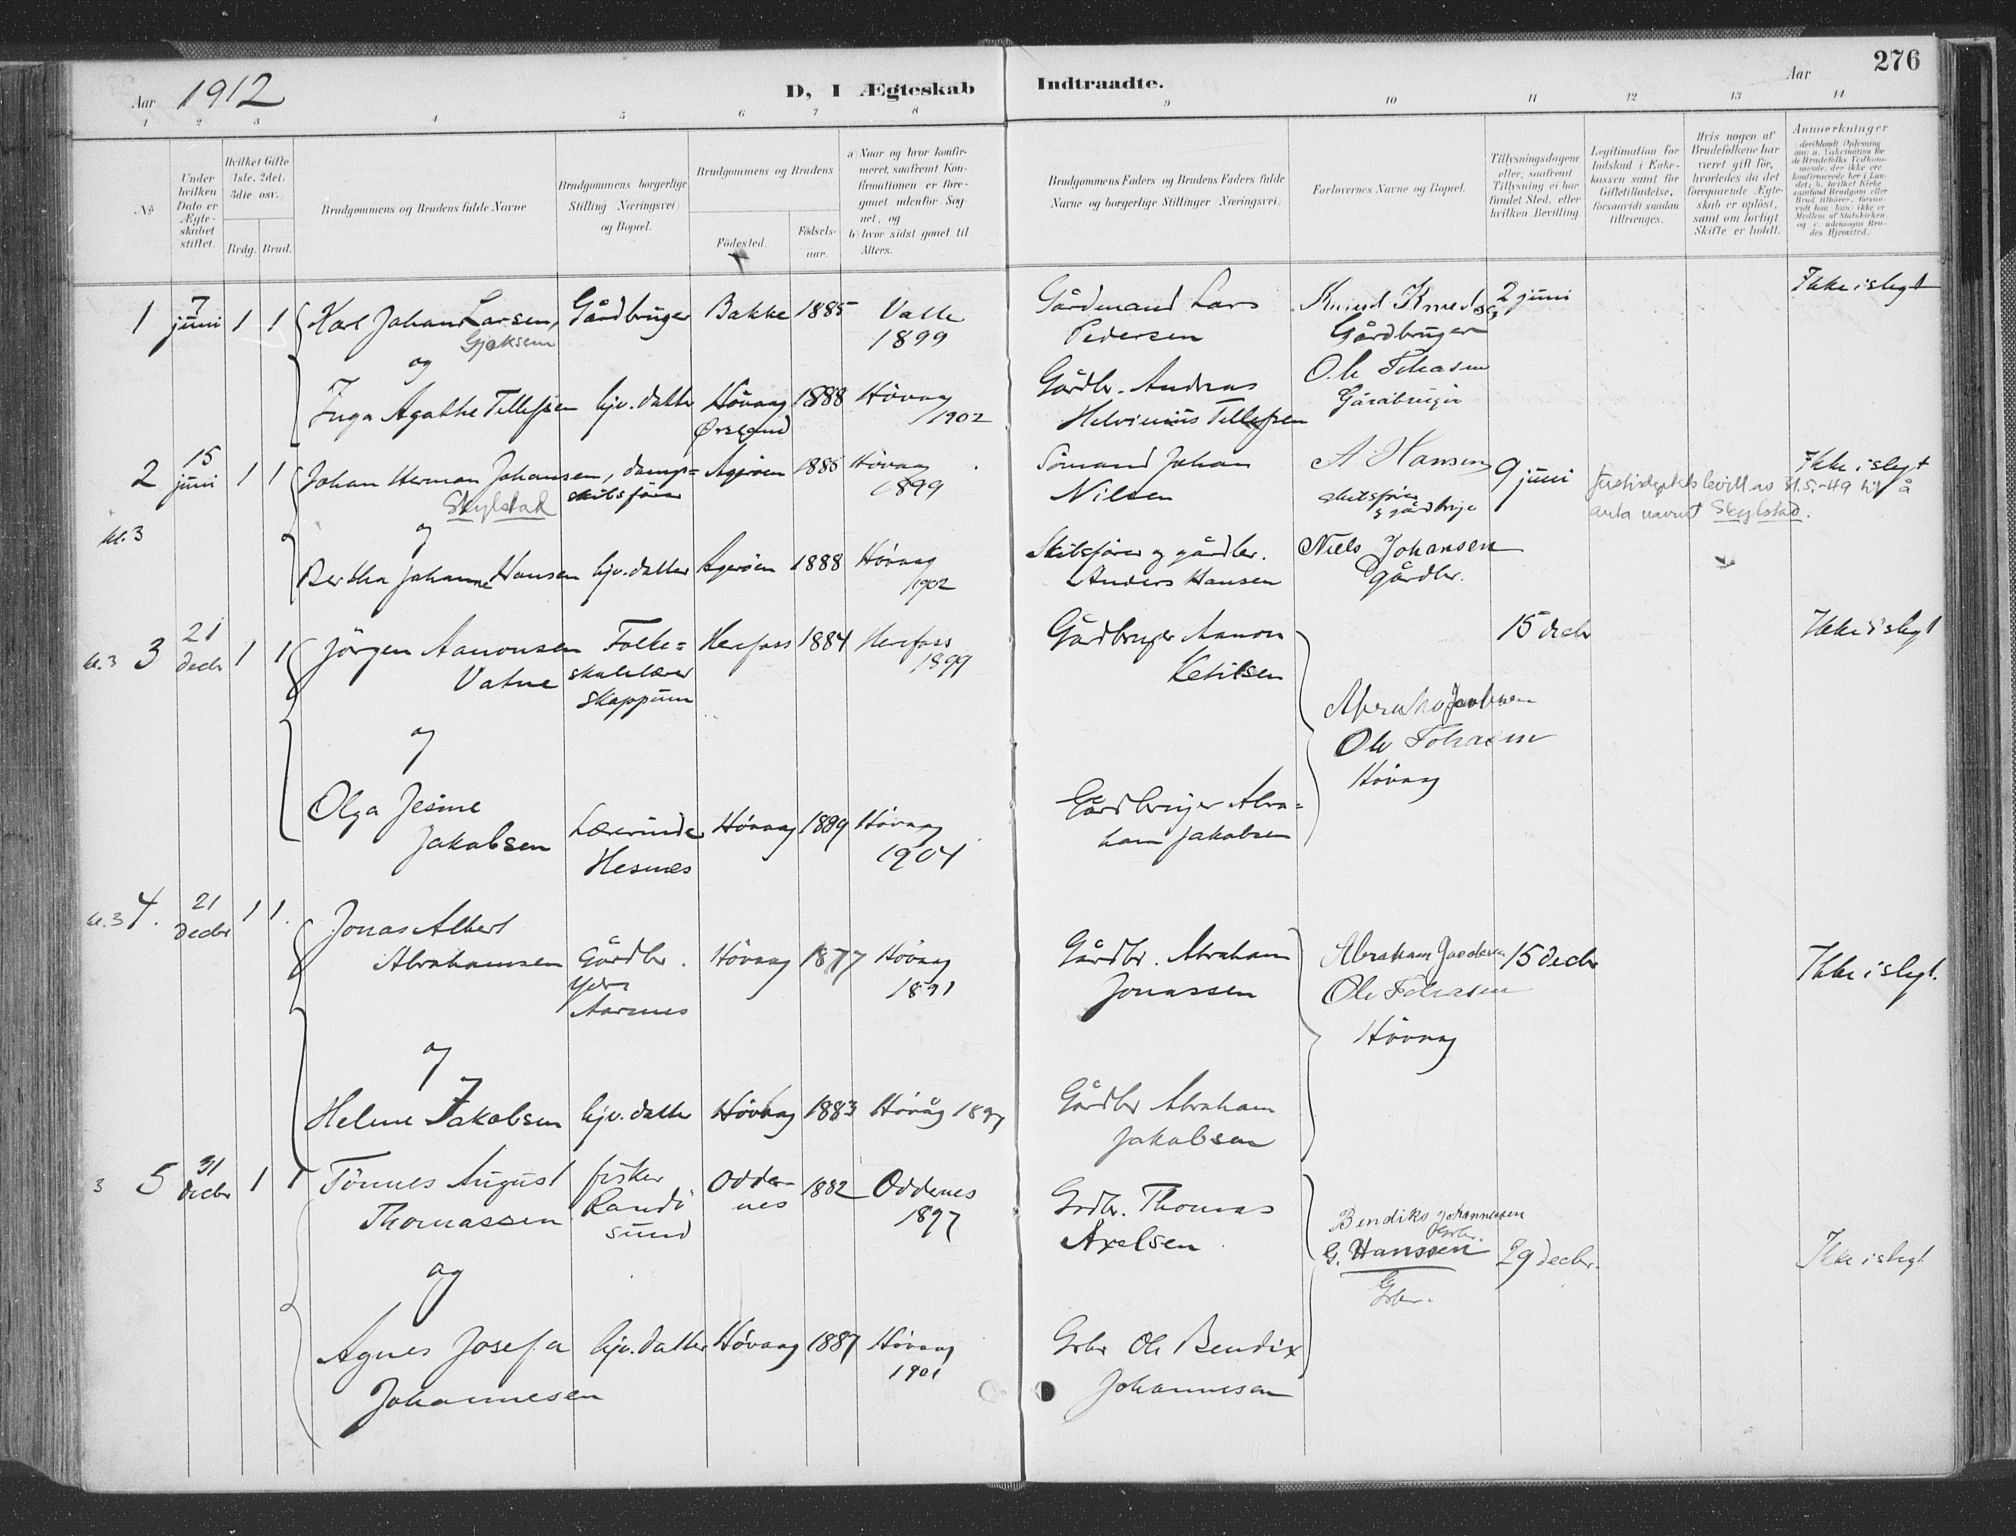 Aar 1912 D, I Ægteskab Indtraadte. Aar 276
1 2 3 4 5 6 7 8 9 10 11 12 13 14
No
Under hvilken Dato er Ægteskabet stiftet.
Hvilket Gifte (1ste, 2det, 3die osv.)
Brdg. Brud.
Brudgommens og Brudens fulde Navne
Brudgommens borgerlige Stilling (Næringsvei) og Bopæl.
Brudgommens og Brudens
Fødested. Fødselsaar.
a) Naar og hvor konfirmeret, saafremt Konfirmationen er foregaaet udenfor Sognet, og
b) hvor sidst gaaet til Alters.
Brudgommens Faders og Brudens Faders fulde Navne og borgerlige Stillinger (Næringsvei).
Forlovernes Navne og Bopæl.
Tillysningsdagene eller, saafremt Tillysning ei har fundet Sted, efter hvilken Bevilling.
Legitimation for Indskud i Enkekassen samt for Giftetilladelse, forsaavidt saadan tiltrænges.
Hvis nogen af Brudefolkene har været gift før, hvorledes da det foregaaende Ægteskab er opløst, samt om lovligt Skifte er holdt.
Anmerkninger
1 7 juni 1 1 Karl Johan Larsen, Gårdbruger Bakke 1885 Valle 1899 Gårdmand Lars Pedersen 2 juni Ikke i slegt
Gårdbruger
og
Ole Tobiasen
Gårdbruger
Inga Agathe Tellefsen hjv. datter Høvaag 1888 Høvaag 1902 Gårdbr. Andreas Tellefsen
2 15 juni 1 1 Johan Herman Johansen, dampskibsfører Agerøen 1885 Høvaag 1899 Sömand Johan Nilsen A Hansen skibsfører & gårdbruger 9 juni Ikke i slegt
Skylstad
31.5.-49 å anta navnet Skylstad.
kl. 3
og
Bertha Johanne Hansen hjv. datter Agerøen 1888 Høvaag 1902 Skibsfører og gårdbr. Anders Hansen Niels Johansen gårdbr.
kl. 3 3 21 decbr 1 1 Jörgen Aanonsen Vatne Folkeskolelærer Skoppum Herefoss 1884 Herefoss 1899 Gårdbruger Aanon Ketilsen 15 decbr Ikke i slegt
og
Ole Tobiasen
Høvaag
Olga Jesine Jakobsen Lærerinde Hesnes Høvaag 1889 Høvaag 1904 Gårdbruger Abraham Jakobsen
kl. 3 4. 21 decbr 1 1. Jonas Albert Abrahamsen Gårdbr. Aarnes Høvaag 1877 Høvaag 1891 Gårdbr. Abraham Jonassen Abraham Jacobsen 15 decbr Ikke i slegt.
Ole Tobiasen
Høvaag
og
Helene Jakobsen hjv. datter Høvaag 1883 Høvåg 1897 Gårdbr Abraham Jakobsen
3 5 31 decbr 1 1 Tönnes August Thomassen fisker Randösund Oddernes 1882 Oddernes 1897 Grdbr. Thomas Axelsen Bendiks Johannessen Grbr.
G. Hanssen 29 decbr. Ikke i slegt
Grbr.
og
Agnes Josefa Johannesen hjv. datter Høvaag 1887 Høvaag 1901 Grbr Ole Bendix Johannesen